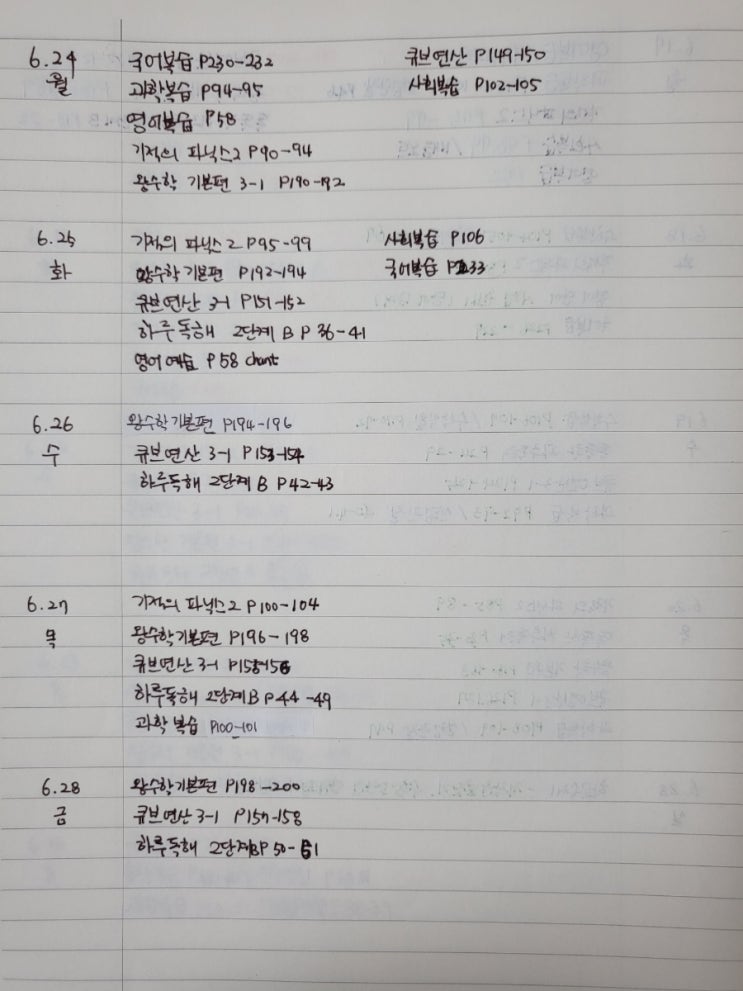 6.24 국어복습 P230-232 큐브연산 P149-150
월 과학복습 P94-95 사회복습 P102-105
영어복습 P58
기적의 파닉스2 P90-94
왕수학 기본편 3-1 P190-192
6.25 기적의 파닉스2 P95-99 사회복습 P106
화 왕수학기본편 P192-194 국어복습 P233
큐브연산 3-1 P151-152
하루독해 2단계 B P36-41
영어예습 P58 chant
6.26 왕수학기본편 P194-196
수 큐브연산 3-1 P153-154
하루독해 2단계 B P42-43
6.27 기적의 파닉스2 P100-104
목 왕수학기본편 P196-198
큐브연산 3-1 P155-156
하루독해 2단계B P44-49
과학복습 P100-101
6.28 왕수학기본편 P198-200
금 큐브연산 3-1 P157-158
하루독해 2단계B P50-51